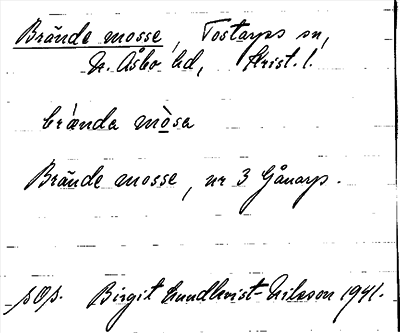 Brände mosse, Tostarps sn,
N. Åsbo hd, Krist. l.
brànda mòsa
Brände mosse, nr 3 Gånarp.
sOs. Birgit Lundkvist-Nilsson 1941.